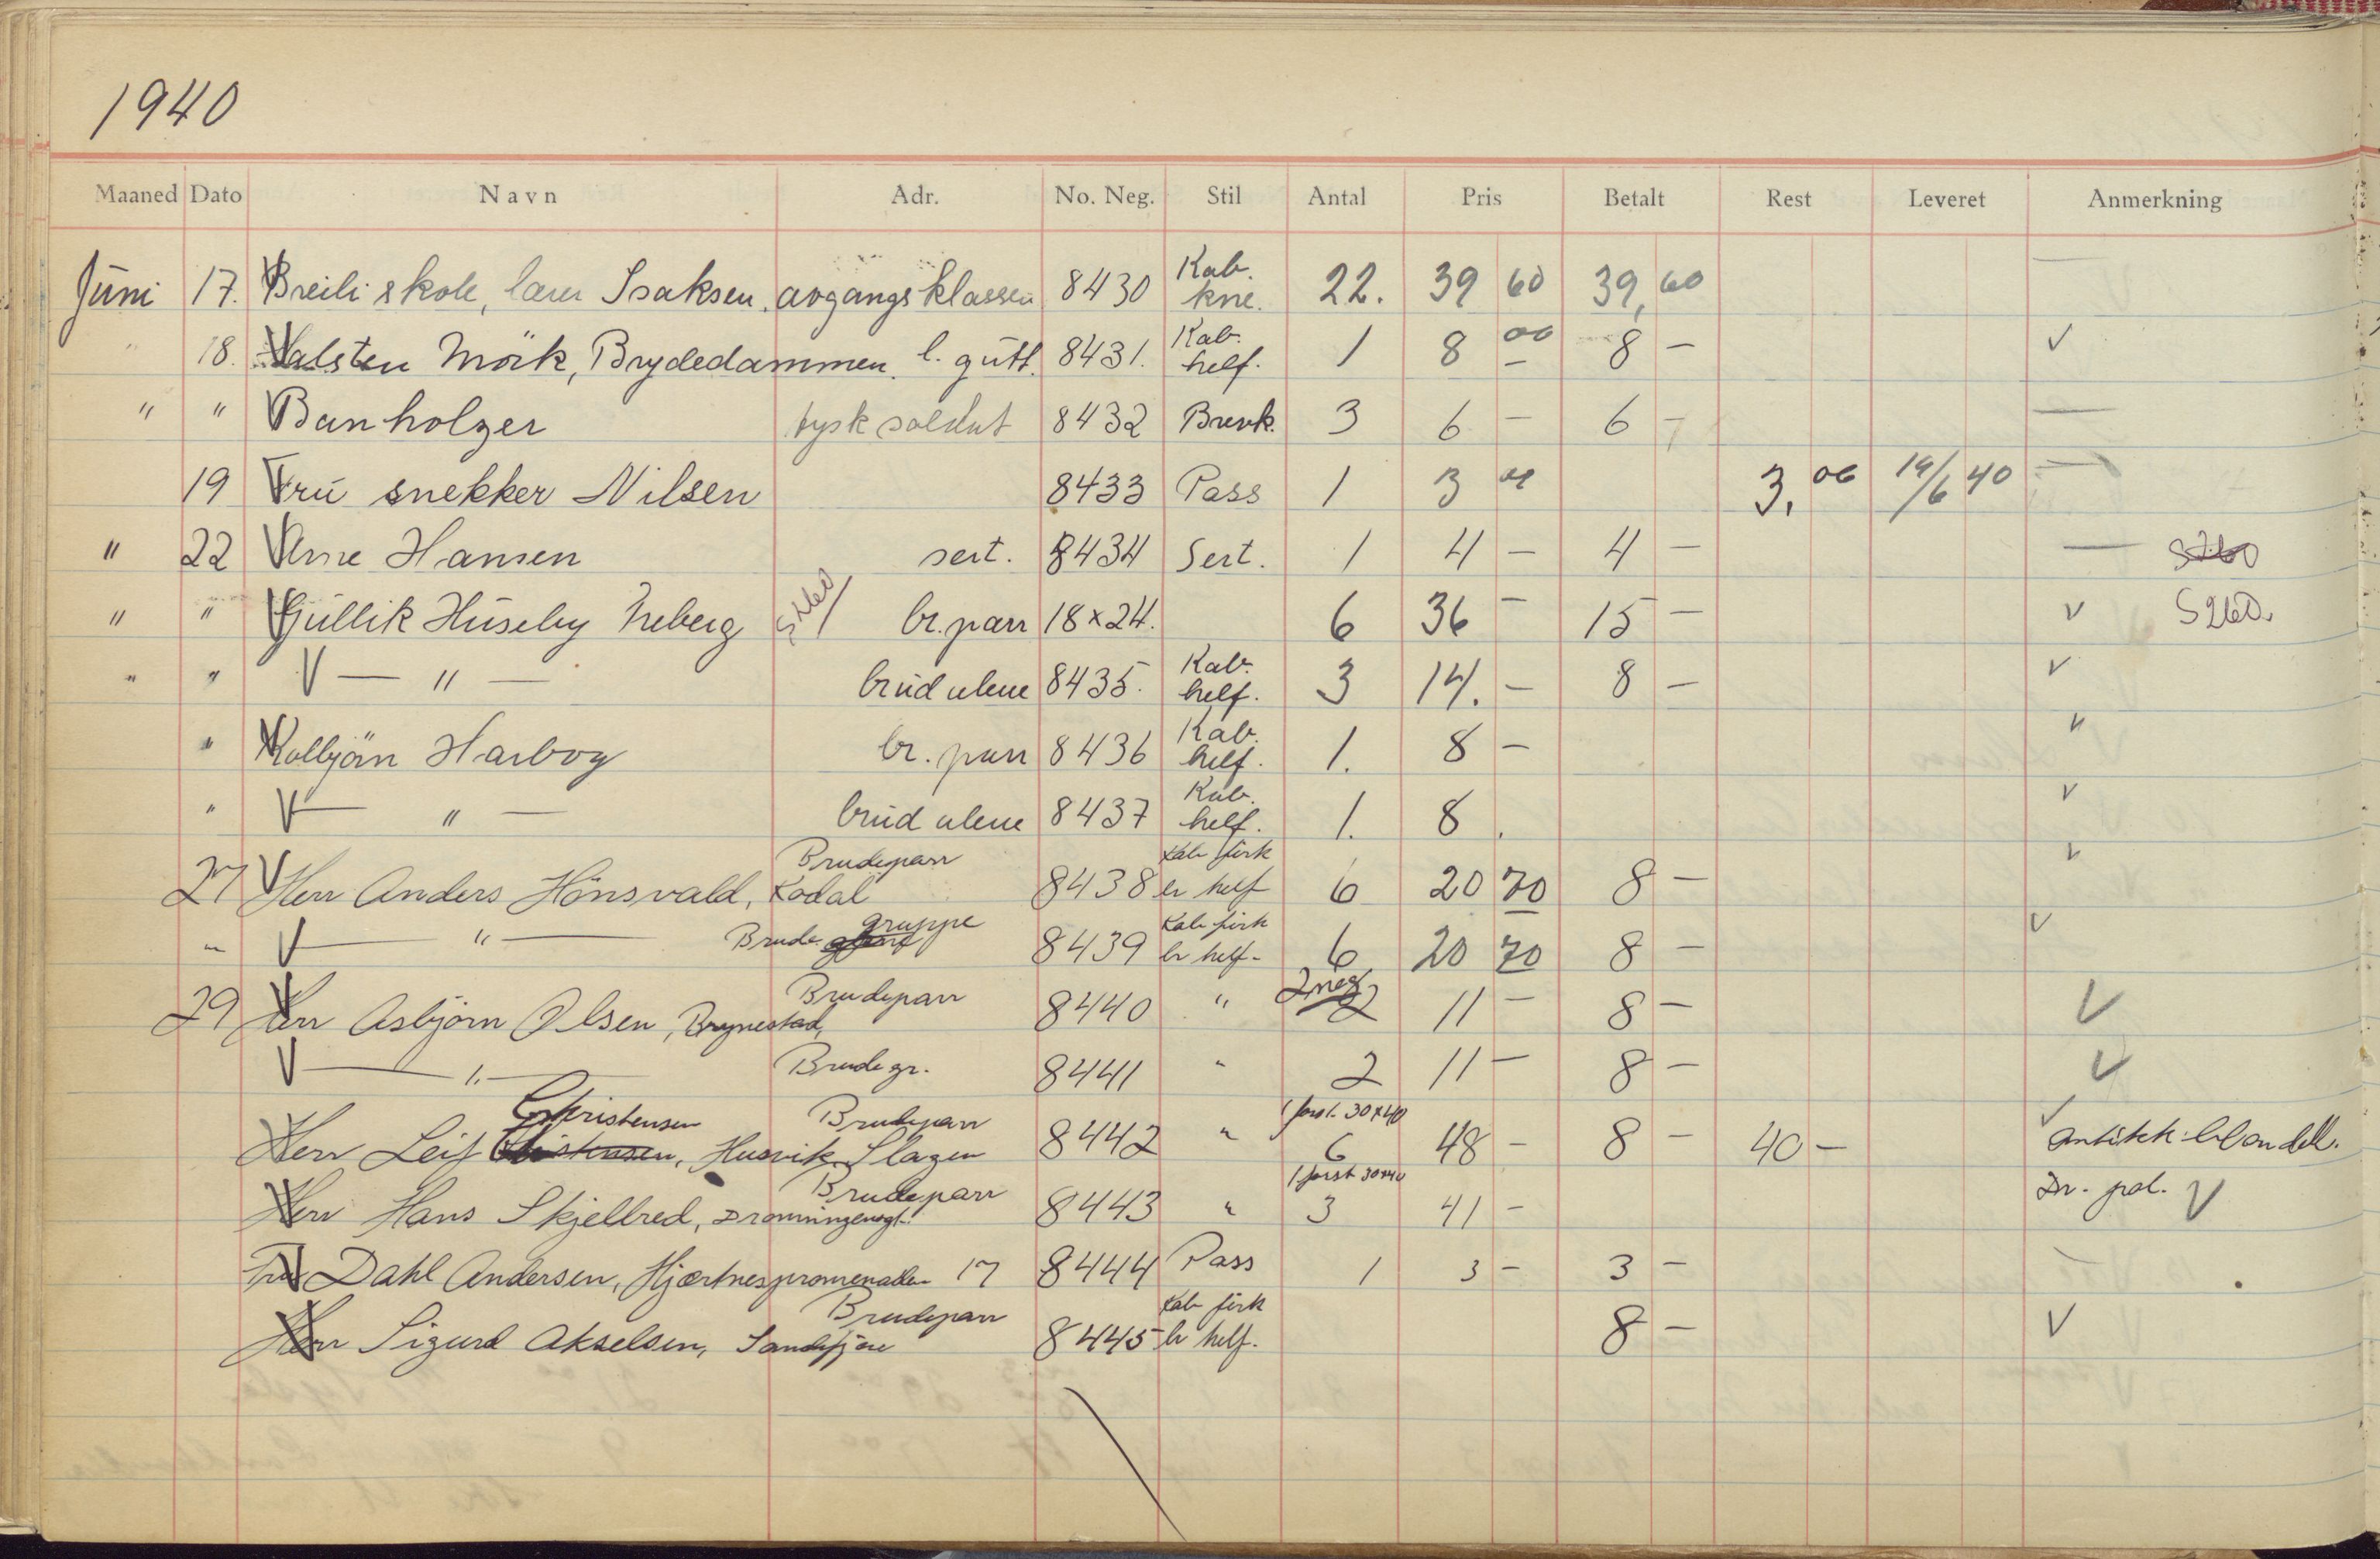 1940
Maaned Dato Navn Adr. No. Neg. Stil Antal Pris Betalt Rest Leveret Anmerkning
Juni 17. Breili skole, lærer Isaksen. avgangsklassen 8430 Kab. kne. 22. 39 60 39,60
" 18. Halsten Mörk, Brydedammen. l. gutt. 8431. Kab. helf. 1 8 00 8 —
" " Banholzer tysk soldat 8432 Brevk. 3 6 — 6 —
19 Fru snekker Nilsen 8433 Pass 1 3 00 3,00 19/6 40
" 22 Arne Hansen sert. 8434 Sert. 1 4 — 4 —
" " Gullik Huseby Freberg br.parr 18x24. 6 36 — 15 — V S260.
" " V — " — brud alene 8435. Kab. helf. 3 14. — 8 — V
" Kolbjörn Harbog br. parr 8436 Kab. helf. 1. 8 — V
" V — " — brud alene 8437 Kab. helf. 1. 8. V
27 Herr Anders Hönsvald, Kodal Brudeparr 8438 Kab firk er helf 6 20 70 8 — V
" V — " — Brude gruppe 8439 Kab firk br helf- 6 20 70 8 — V
29 Herr Asbjörn Olsen, Brynestad, Brudeparr 8440 " 2 neg 2 11 — 8 — V
V — " — Brudegr. 8441 " 2 11 — 8 — V
Herr Leif Christensen, Husvik Slagen Brudeparr 8442 " 1 forst. 30x40 6 48 — 8 — 40 — V
Herr Hans Skjellred, Dronningensgt. Brudeparr 8443 " 1 forst 30x40 3 41 — V
Fru Dahl Andersen, Hjærtnespromenaden 17 8444 Pass 1 3 — 3 —
Herr Sigurd Akselsen, Sandefjord Brudeparr 8445 Kab firk br helf. 8 — V